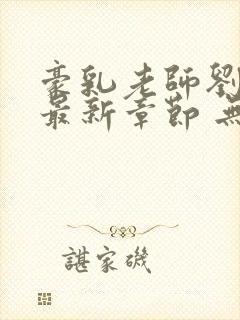 豪乳老師劉
最新章節 無
諶家磯